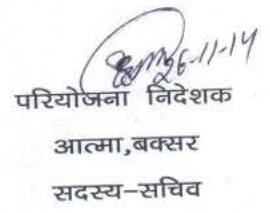 26-11-14
परियोजना निदेशक
आत्मा,बक्सर
सदस्य–सचिव